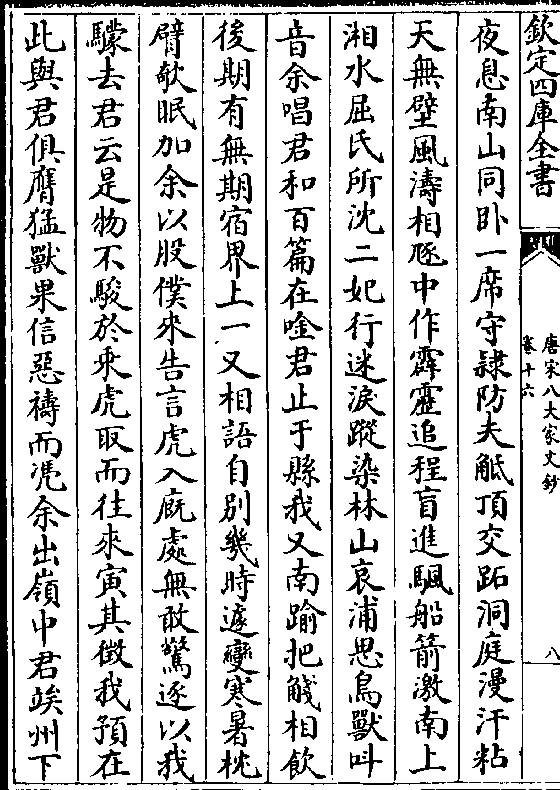 欽定四庫全書
唐宋八大家文鈔
卷十六
八
夜息南山同卧一席守隷防夫觝頂交跖洞庭漫汗粘
天無壁風濤相豗中作霹靂追程盲進颿船箭激南上
湘水屈氏所沈二妃行迷淚蹤染林山哀浦思鳥獸叫
音余唱君和百篇在唫君止于縣我又南踰把觴相飲
後期有無期宿界上一又相語自别幾時遽變寒暑枕
臂欹眠加余以股僕來告言虎入廐處無敢驚逐以我
驥去君云是物不駿於乘虎取而往來寅其徴我預在
此與君俱膺猛獸果信惡禱而凴余出嶺中君竢州下